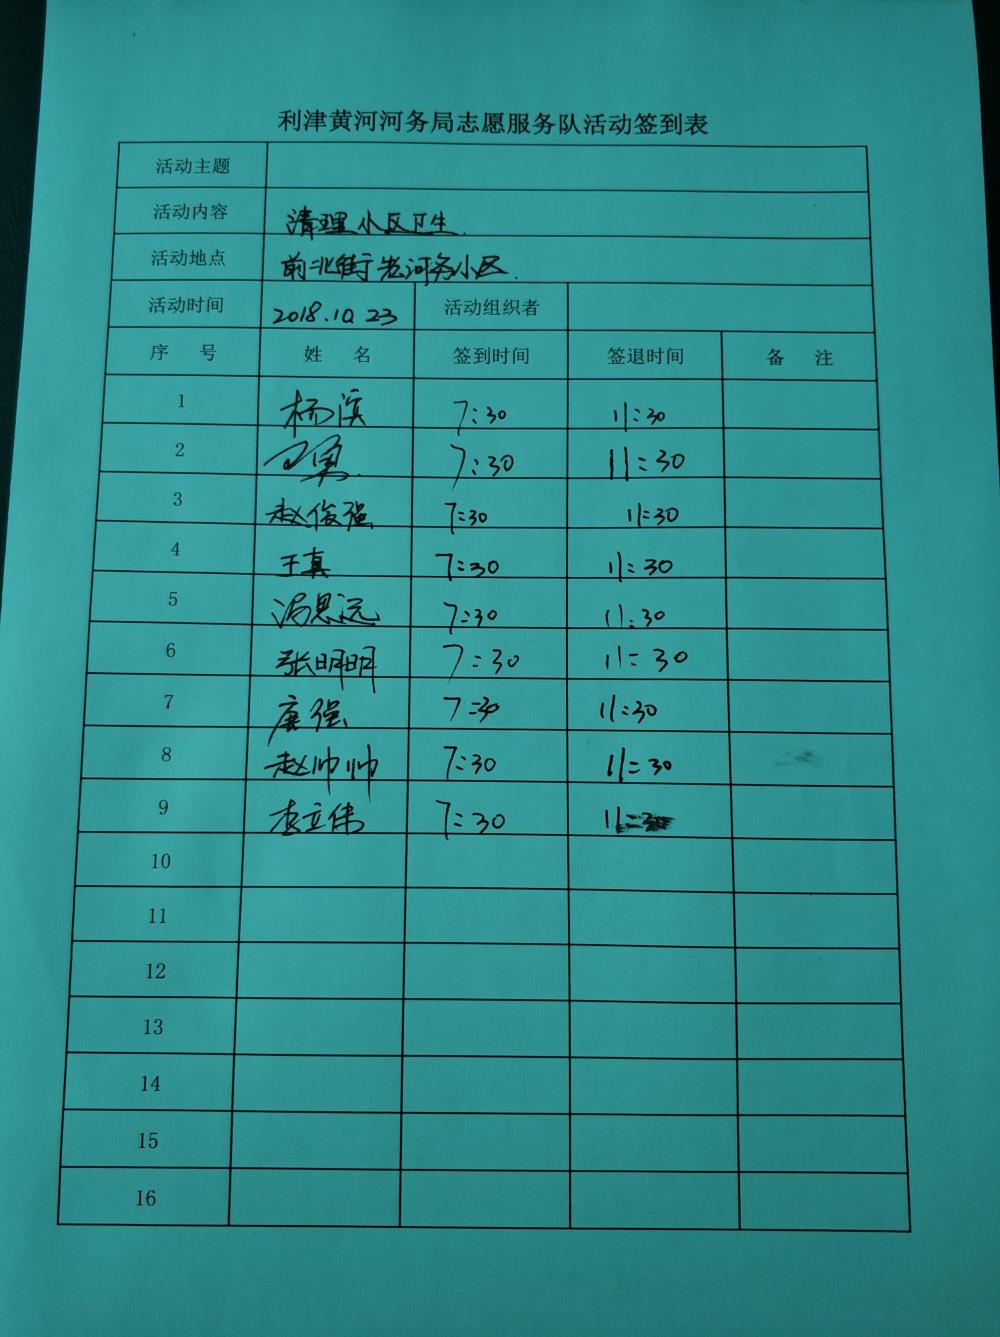 利津黄河河务局志愿服务队活动签到表
活动主题
活动内容 清理小区卫生.
活动地点 前北街老河务小区.
活动时间 2018.10.23 活动组织者
序 号 姓 名 签到时间 签退时间 备 注
1 杨滨 7:30 11:30
2 7:30 11:30
3 赵俊强 7:30 11:30
4 王真 7:30 11:30
5 冯思远 7:30 11:30
6 张明明 7:30 11:30
7 唐强 7:30 11:30
8 赵帅帅 7:30 11:30
9 李立伟 7:30 11:30
10
11
12
13
14
15
16